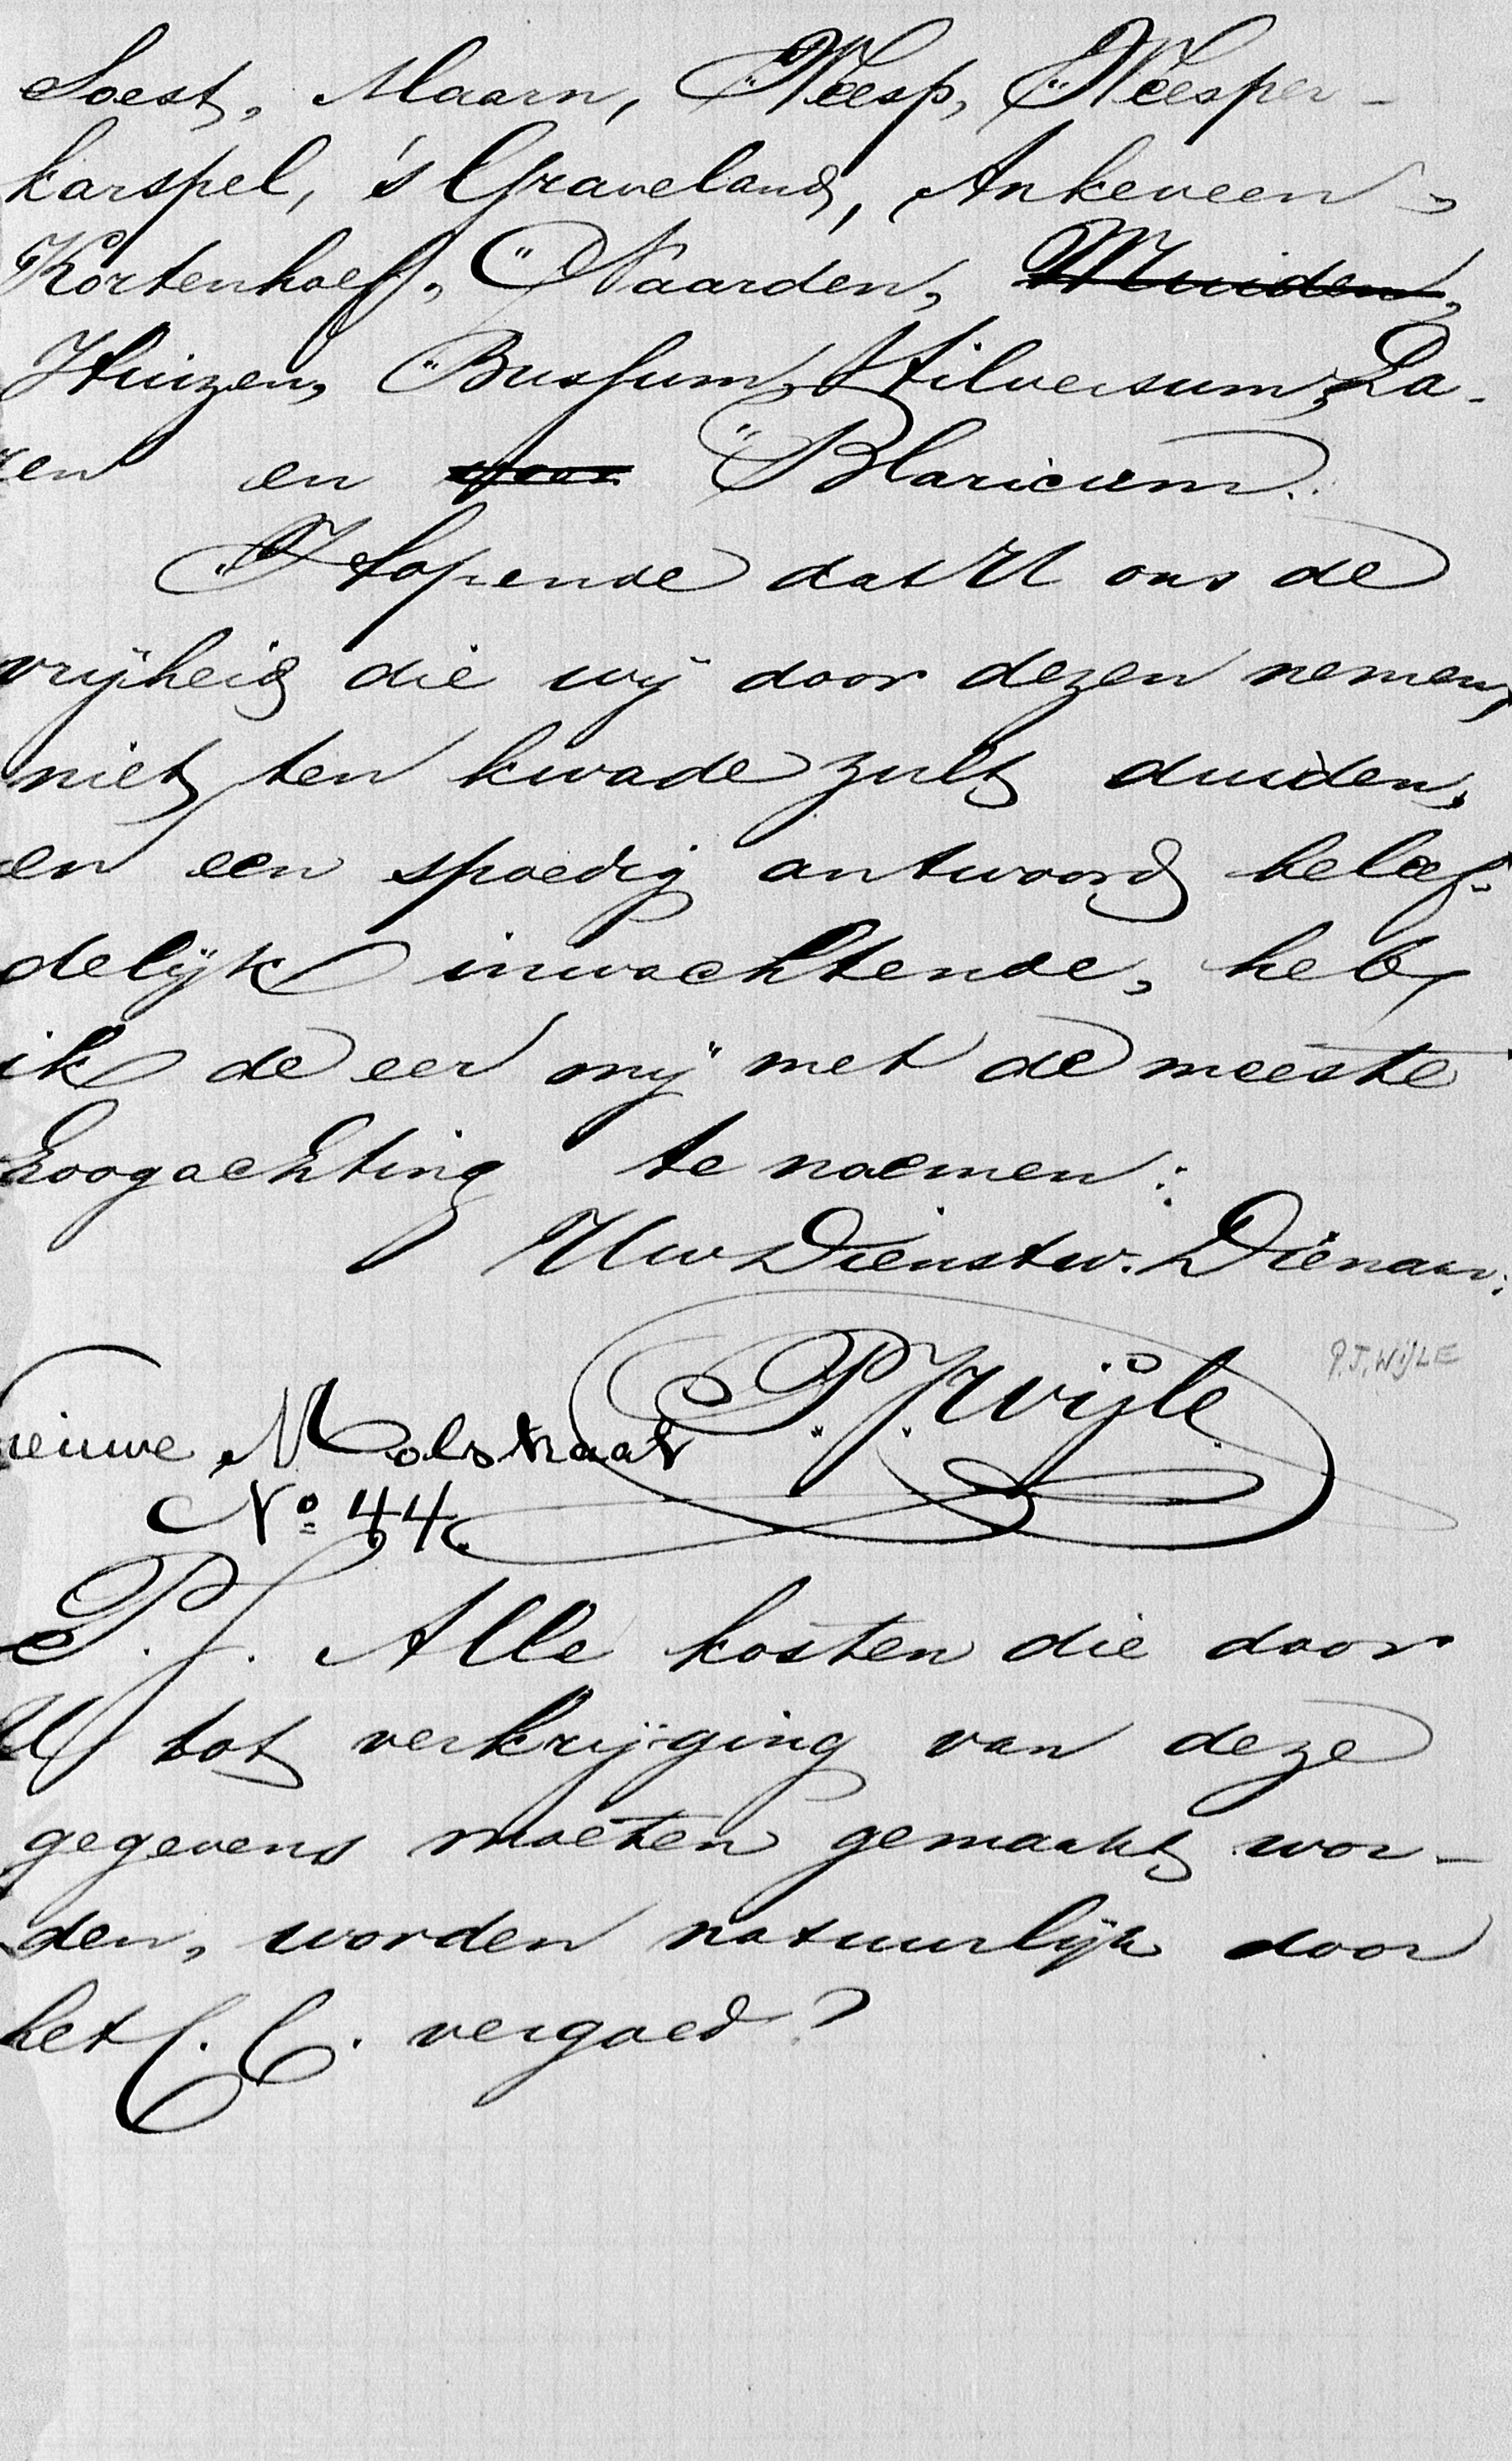 Soest, Maarn, Weesp, Weesper-
karspel, 's Graveland, Ankeveen,
Kortenhoef, Naarden, Muiden,
Huizen, Bussum, Hilversum, La-
ren en voor Blaricum.
Hopende dat U ons de
vrijheid die wij door dezen nemen,
niet ten kwade zult duiden,
en een spoedig antwoord beleef-
delijk inwachtende, heb
ik de eer mij met de meeste
hoogachting te noemen:
Uw Dienstw. Dienaar:
P.J. Wijle
P.J. WIJLE
Nieuwe Molstraat
No 44.
P.S. Alle kosten die door
U tot verkrijging van deze
gegevens moeten gemaakt wor-
den, worden natuurlijk door
het C.C. vergoed?